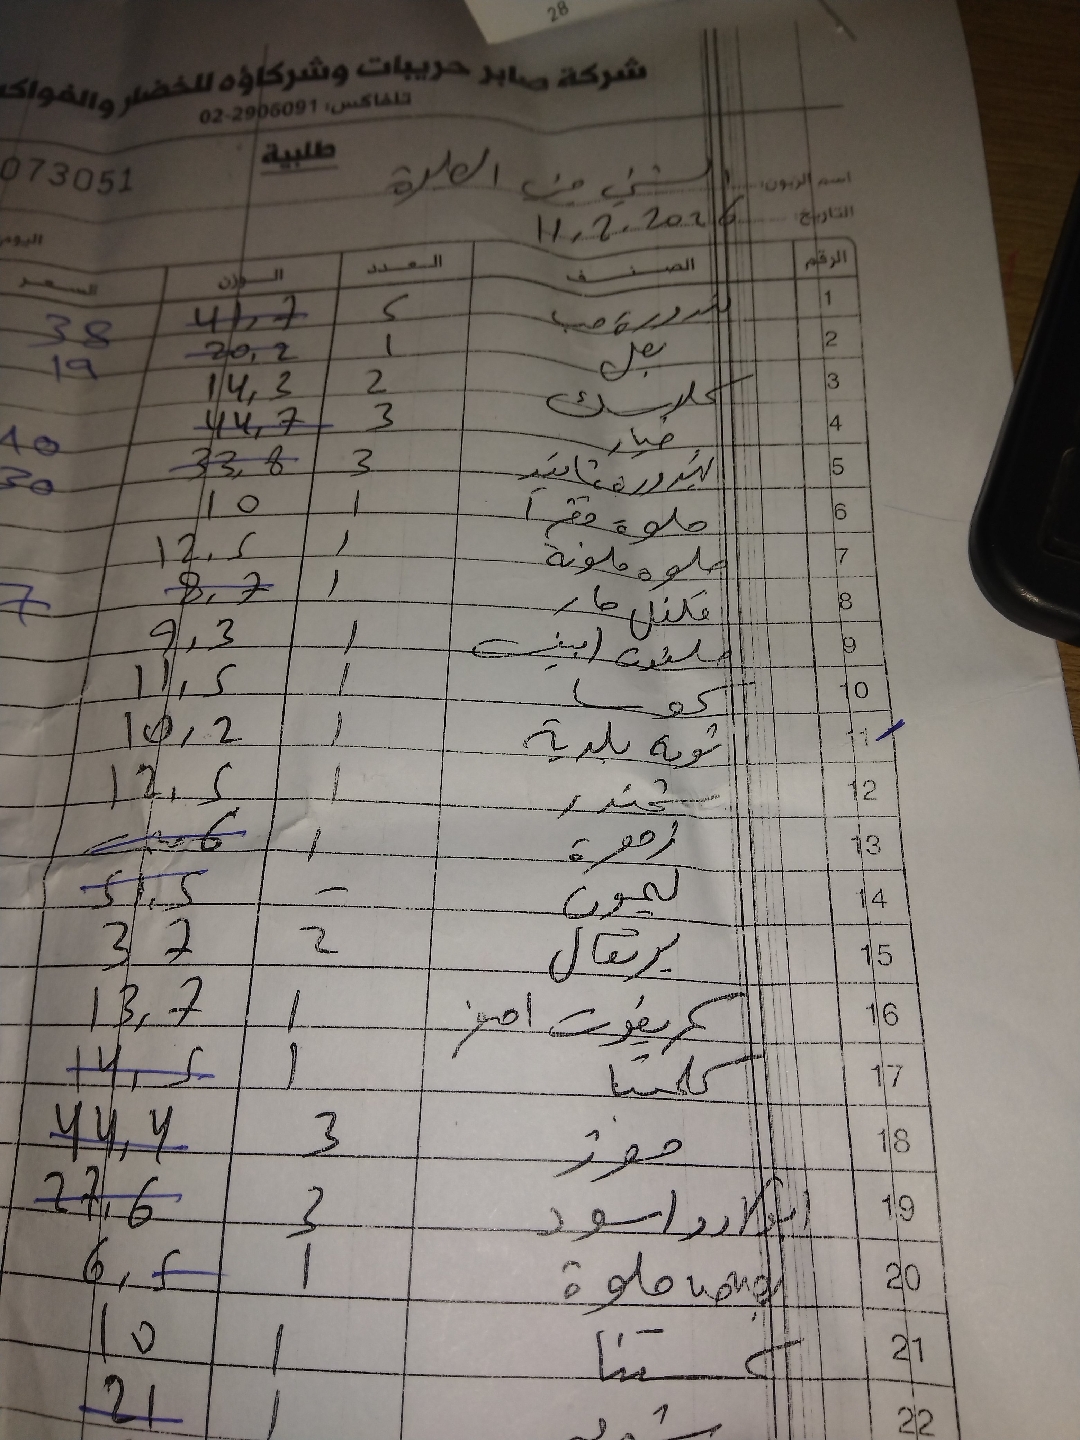 28
شركة صابر حريبات وشركاؤه للخضار والفواكه
تلفاكس: 02-2906091
طلبية
073051
اسم الزبون:
التاريخ: 11.2.2026
اليوم
الرقم الصنف العدد الوزن السعر
1 بندورة حب 5 41,7 38
2 بصل 1 20,2 19
3 كلاسك 2 14,3
4 خيار 3 44,7 40
5 بندورة 3 33,8 30
6 حلوة 1 10
7 حلوه ملونة 1 12,5
8 فلفل حار 1 8,7 7
9 1 9,3
10 كوسا 1 11,5
11 ثومه بلدية 1 10,2
12 شمندر 1 12,5
13 زهرة 1 6
14 ليمون - 51,5
15 برتقال 2 37
16 كريفوت اصفر 1 13,7
17 كلمنتينا 1 14,5
18 موز 3 44,4
19 افوكادو اسود 3 27,6
20 حلوة 1 6,5
21 كستنا 1 10
22 1 21